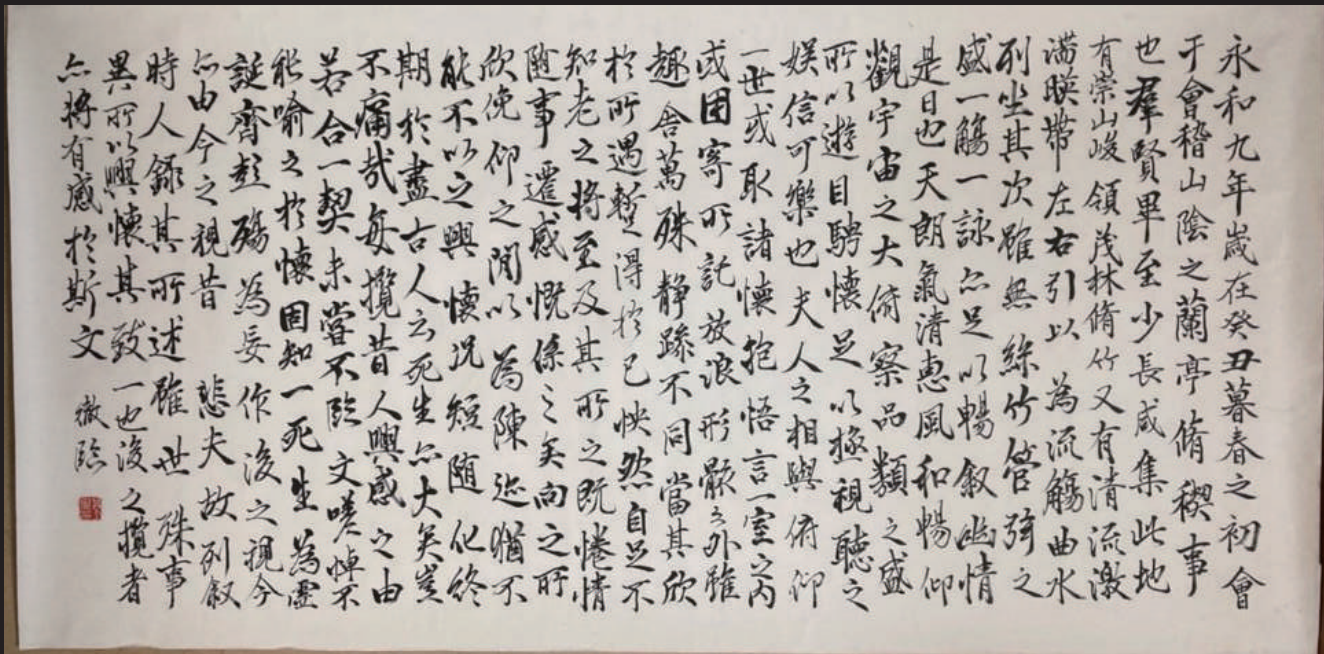 永和九年歲在癸丑暮春之初會
于會稽山陰之蘭亭脩稧事
也羣賢畢至少長咸集此地
有崇山峻領茂林脩竹又有清流激
湍暎帶左右引以為流觴曲水
列坐其次雖無絲竹管弦之
盛一觴一詠亦足以暢敘幽情
是日也天朗氣清惠風和暢仰
觀宇宙之大俯察品類之盛
所以遊目騁懷足以極視聽之
娛信可樂也夫人之相與俯仰
一世或取諸懷抱悟言一室之內
或因寄所託放浪形骸之外雖
趣舍萬殊静躁不同當其欣
於所遇蹔得於己怏然自足不
知老之將至及其所之既惓情
隨事遷感慨係之矣向之所
欣俛仰之閒以為陳迹猶不
能不以之興懷況短隨化終
期於盡古人云死生亦大矣豈
不痛哉每攬昔人興感之由
若合一契未嘗不臨文嗟悼不
能喻之於懷固知一死生為虛
誕齊彭殤為妄作後之視今
亦由今之視昔悲夫故列敘
時人錄其所述雖世殊事
異所以興懷其致一也後之攬者
亦將有感於斯文
徹臨